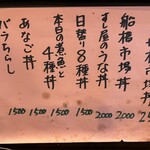 市場丼 2
船橋市場丼 2000
すし屋のうな丼 2000
日替り8種丼 1500
本日の煮魚と4種丼 1500
あなご丼 1500
バラちらし 1500